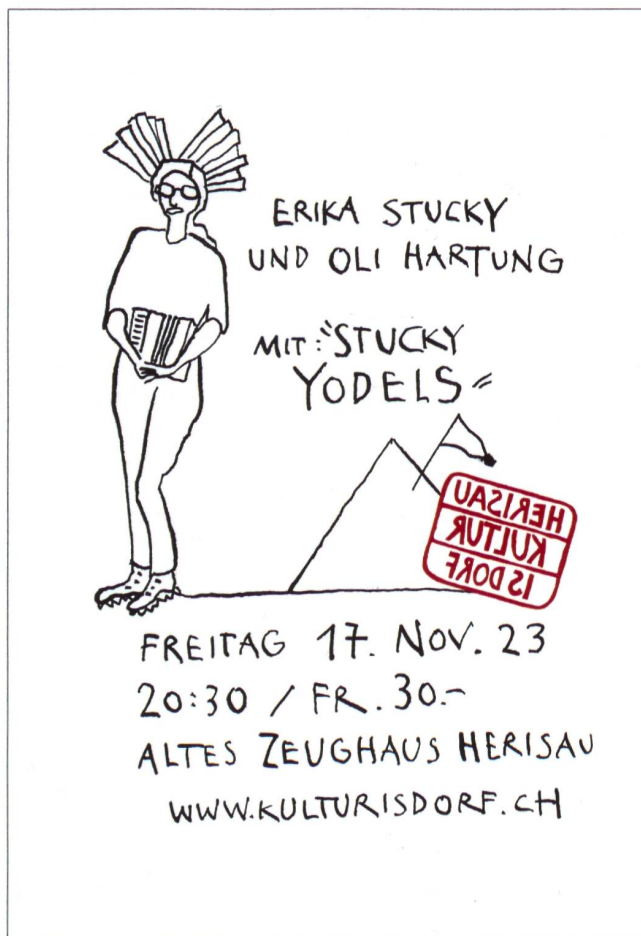 ERIKA STUCKY
UND OLI HARTUNG
MIT: "STUCKY
YODELS"
HERISAU
KULTUR
IS DORF
FREITAG 17. NOV. 23
20:30 / FR. 30.-
ALTES ZEUGHAUS HERISAU
WWW.KULTURISDORF.CH